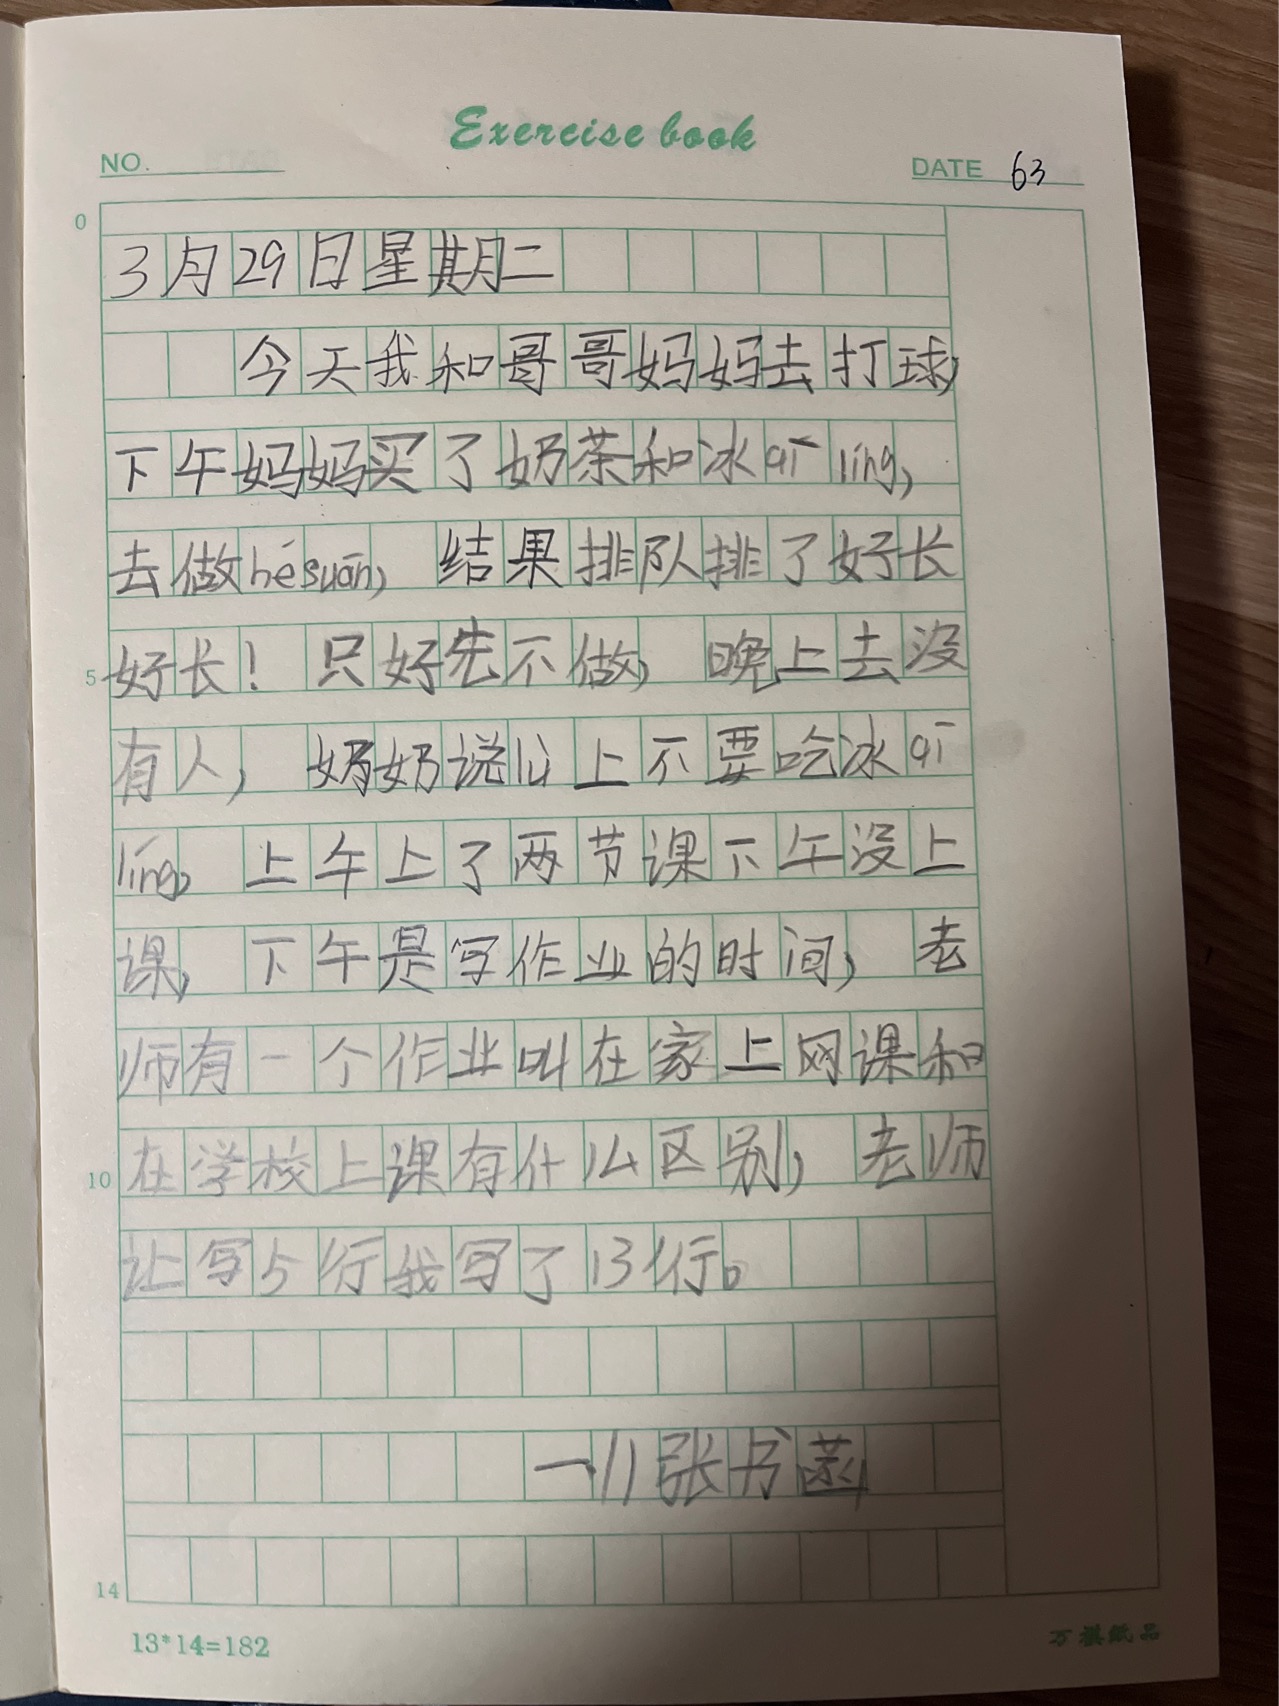 Exercise book
NO.
DATE 63
0
3月29日星期二
今天我和哥哥妈妈去打球,
下午妈妈买了奶茶和冰qī líng,
去做hésuān, 结果排队排了好长
5 好长! 只好先不做, 晚上去没
有人, 奶奶说以上不要吃冰qī
líng。上午上了两节课下午没上
课, 下午是写作业的时间, 老
师有一个作业叫在家上网课和
10 在学校上课有什么区别, 老师
让写5行我写了13行。
一11张书菡
14
13*14=182
万棋纸品